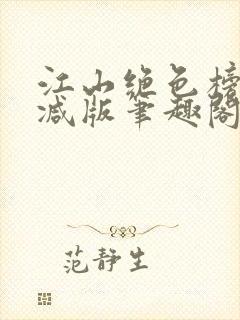 江山绝色榜
减版笔趣阁
范静生